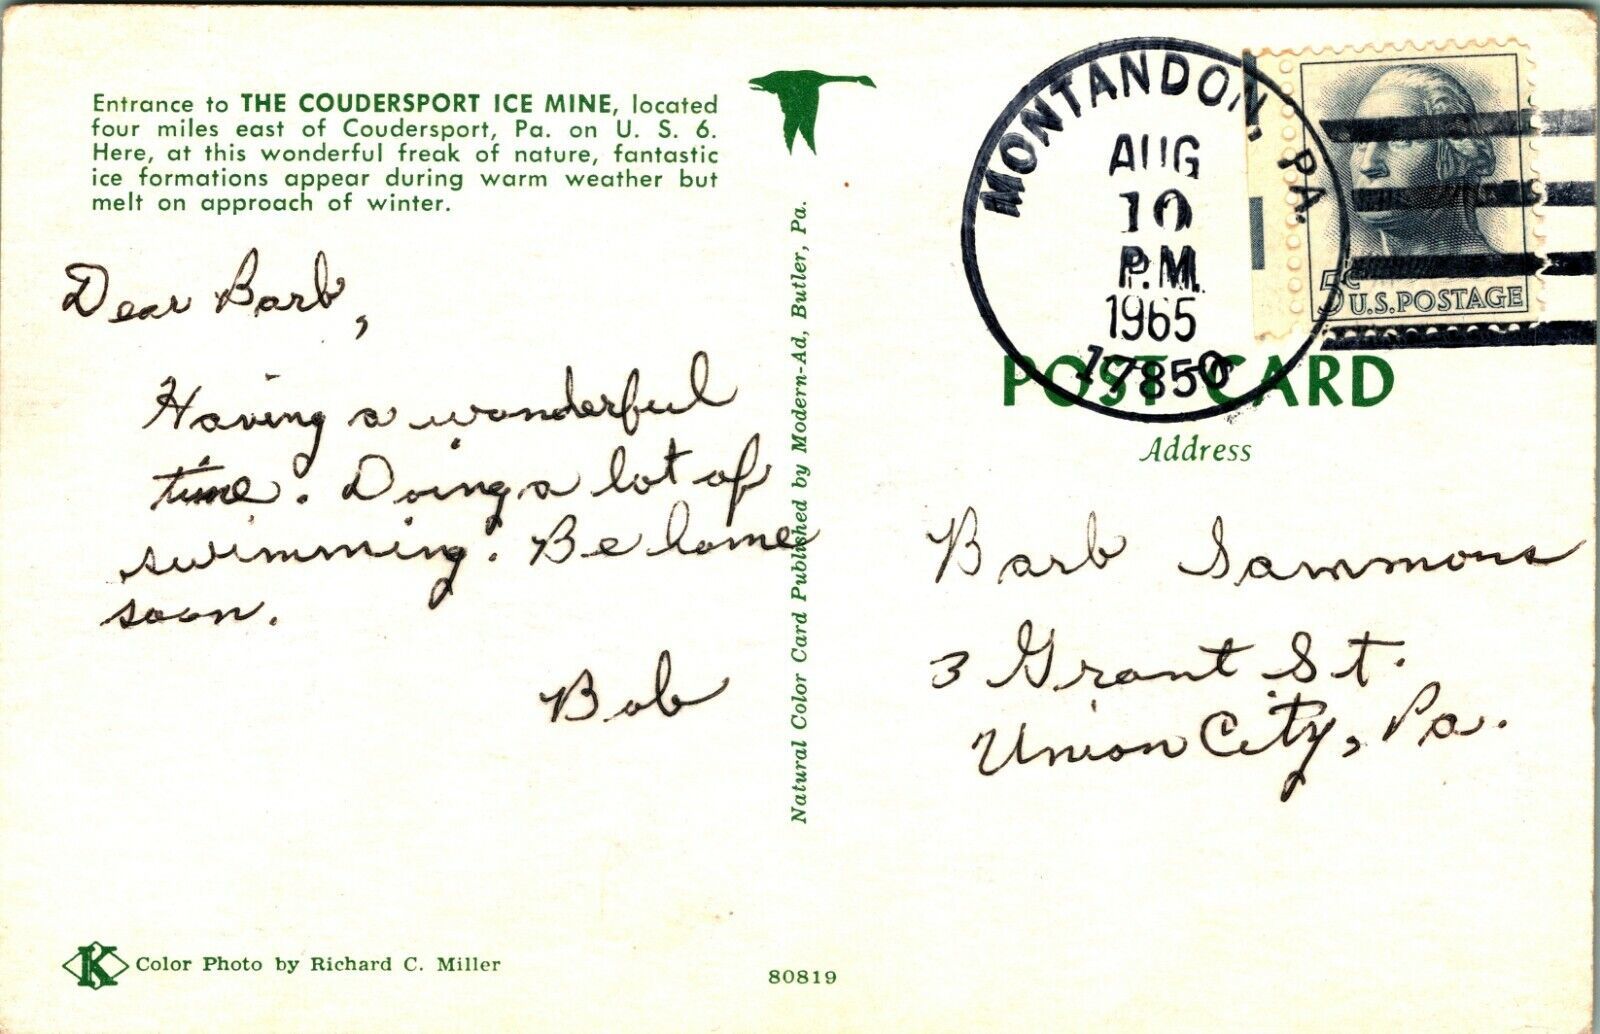 Entrance to THE COUDERSPORT ICE MINE, located
four miles east of Coudersport, Pa. on U. S. 6.
Here, at this wonderful freak of nature, fantastic
ice formations appear during warm weather but
melt on approach of winter.
Dear Barb,
Having a wonderful
time. Doing a lot of
swimming. Be home
soon.
Bob
K Color Photo by Richard C. Miller
Natural Color Card Published by Modern-Ad, Butler, Pa.
80819
MONTANDON, PA.
AUG
10
P.M.
1965
17850
5¢ U.S. POSTAGE
POST CARD
Address
Barb Sammons
3 Grant St.
Union City, Pa.